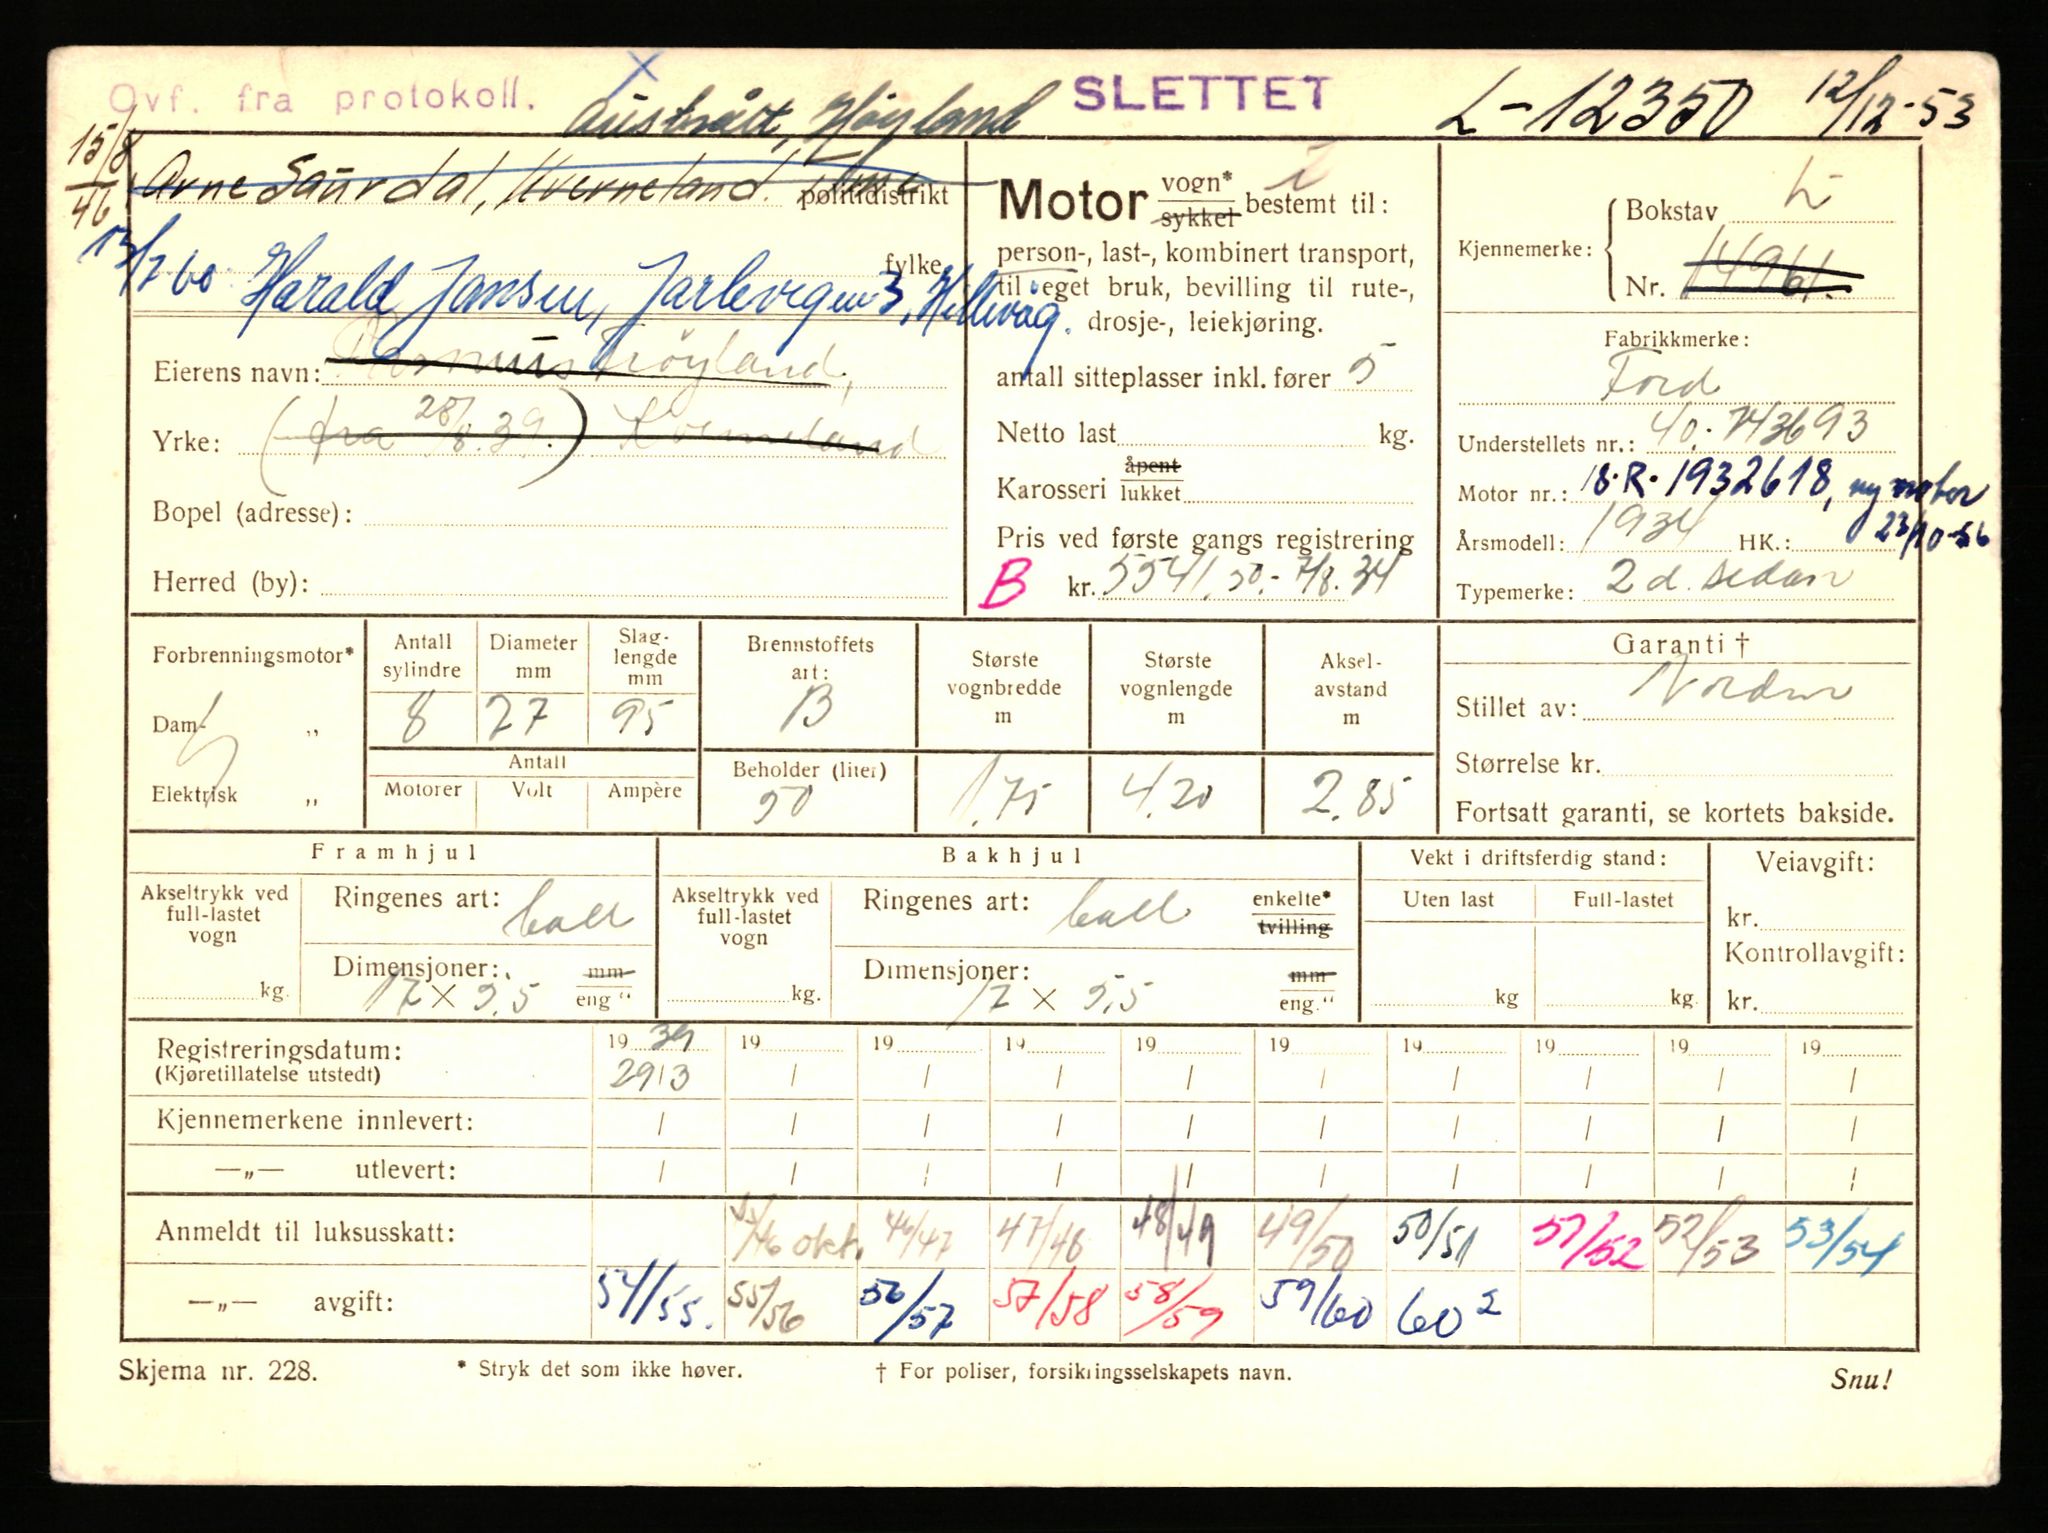 Ovf. fra protokoll.
SLETTET
L-12350 12/12-53
Austrått, Høyland
15/8
46
Arne Saurdal, Kverneland. politidistrikt
13/7 60 Harald Jansen, Jarlevegen 3, Hillevåg.
fylke
Eierens navn: Rasmus Frøyland,
Yrke: (fra 28/8.39.) Kverneland
Bopel (adresse):
Herred (by):
Motor vogn* sykkel bestemt til:
person-, last-, kombinert transport,
til eget bruk, bevilling til rute-,
drosje-, leiekjøring.
antall sitteplasser inkl. fører 5
Netto last kg.
Karosseri åpent lukket
Pris ved første gangs registrering
B kr. 5541.50.- 7/8.34
Kjennemerke: Bokstav L
Nr. 14961.
Fabrikkmerke:
Ford
Understellets nr.: 40.-743693
Motor nr.: 18.R.1932618, ny motor
23/10-56
Årsmodell: 1934 HK.:
Typemerke: 2 d. sedan
Forbrenningsmotor*
Damp „
Elektrisk „
Antall sylindre 8
Diameter mm 77
Slaglengde mm 95
Antall
Motorer Volt Ampère
Brennstoffets art: B
Beholder (liter) 50
Største vognbredde m 1.75
Største vognlengde m 4.20
Aksel-avstand m 2.85
Garanti †
Stillet av: Norden
Størrelse kr.
Fortsatt garanti, se kortets bakside.
Framhjul
Akseltrykk ved full-lastet vogn kg.
Ringenes art: ball
Dimensjoner: 17 × 5.5 mm eng "
Bakhjul
Akseltrykk ved full-lastet vogn kg.
Ringenes art: ball enkelte* tvilling
Dimensjoner: 17 × 5,5 mm eng."
Vekt i driftsferdig stand:
Uten last Full-lastet
kg kg.
Veiavgift:
kr.
Kontrollavgift:
kr.
Registreringsdatum: 1939 19 19 19 19 19 19 19 19 19
(Kjøretillatelse utstedt) 29/3 / / / / / / / / /
Kjennemerkene innlevert: / / / / / / / / / /
—„— utlevert: / / / / / / / / / /
Anmeldt til luksusskatt: 45/46 okt. 46/47 47/48 48/49 49/50 50/51 51/52 52/53 53/54
—„— avgift: 54/55. 55/56 56/57 57/58 58/59 59/60 60²
Skjema nr. 228.
* Stryk det som ikke høver.
† For poliser, forsikringsselskapets navn.
Snu!